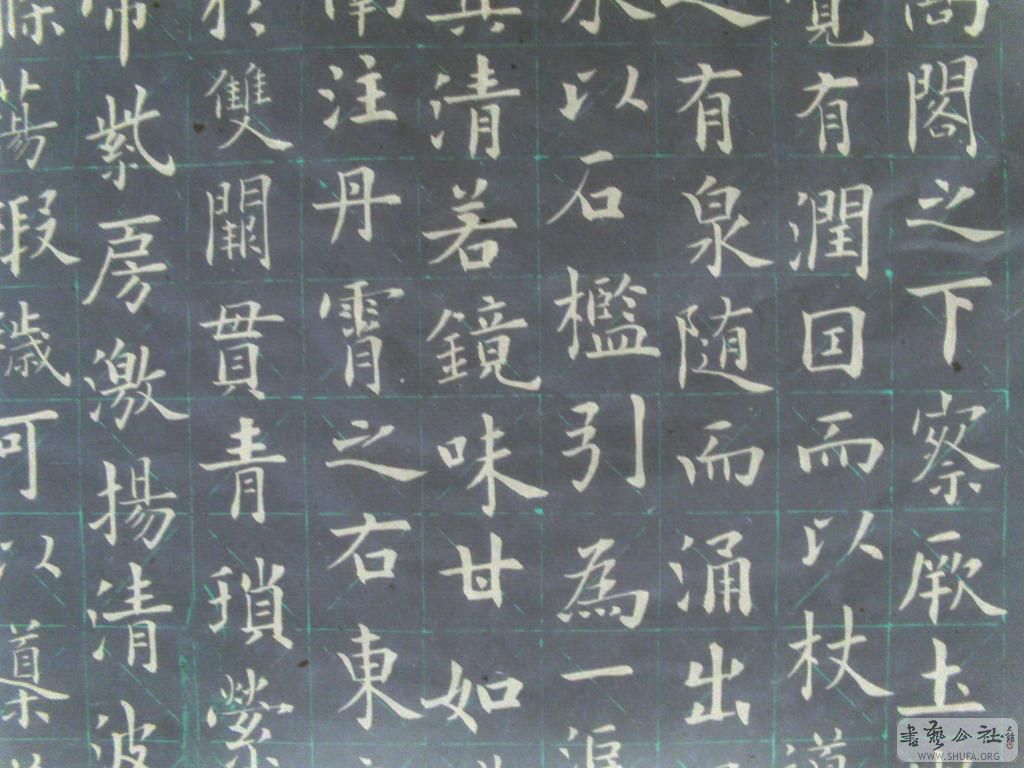 閣之下察厥土
有潤囙而以杖
有泉随而涌出
以石檻引為一渠
其清若鏡味甘如
南注丹霄之右東
於雙闕貫青瑣縈
帶紫房激揚清波
蕩瑕穢可以導
書藝公社
WWW.SHUFA.ORG